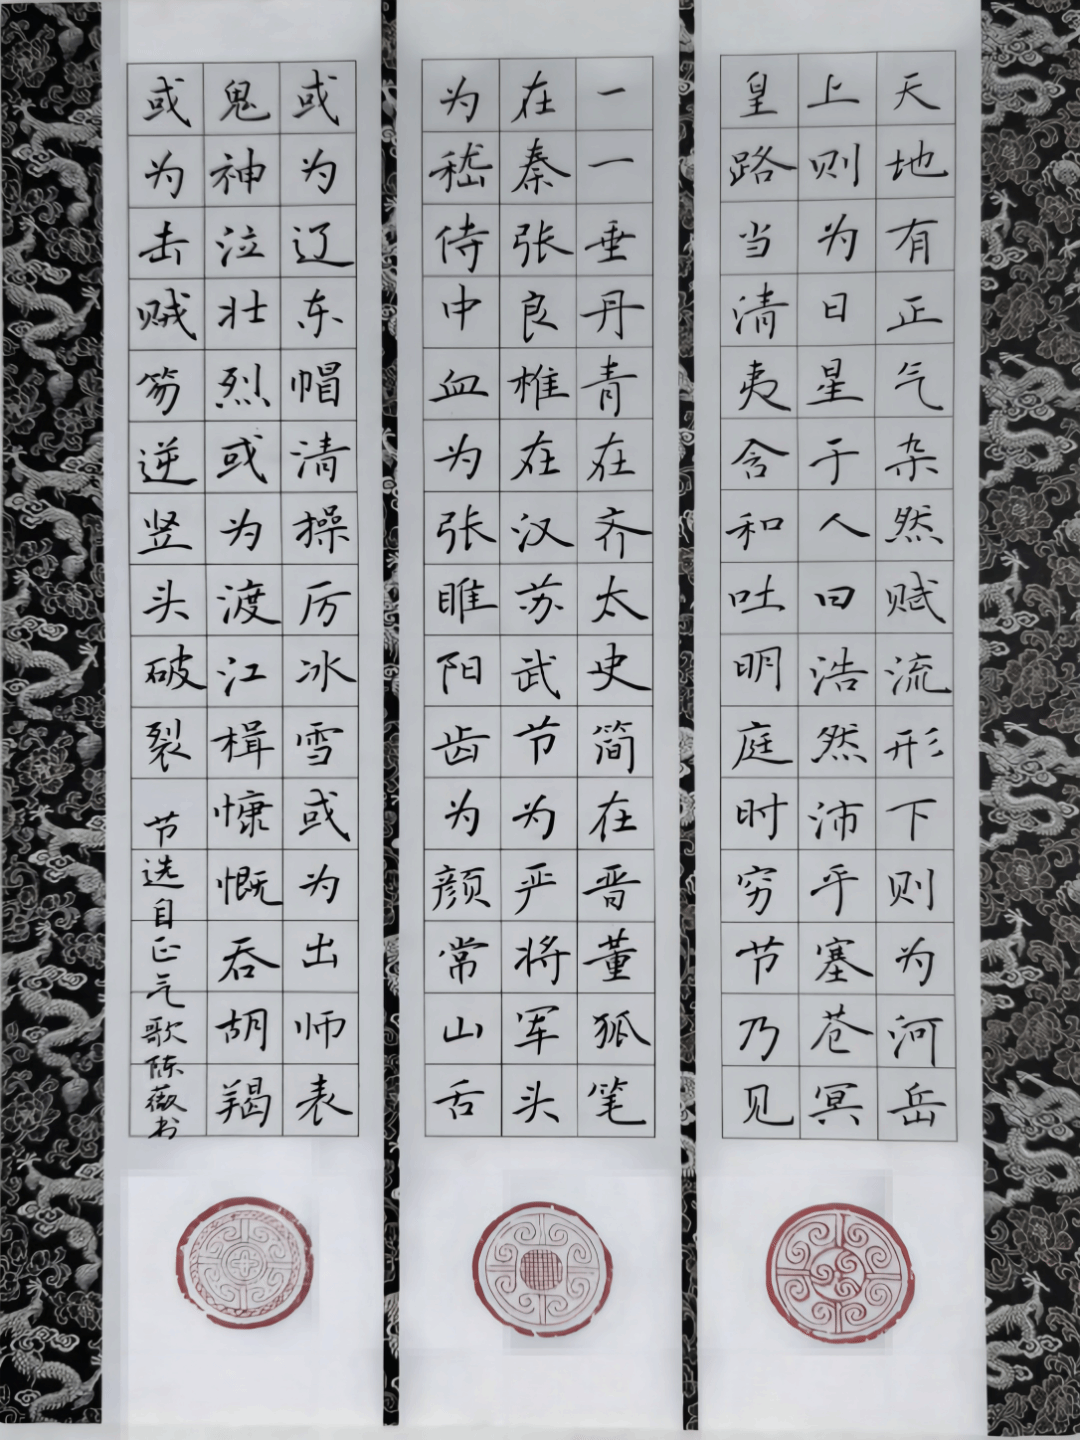 天地有正气杂然赋流形下则为河岳
上则为日星于人曰浩然沛乎塞苍冥
皇路当清夷含和吐明庭时穷节乃见
一一垂丹青在齐太史简在晋董狐笔
在秦张良椎在汉苏武节为严将军头
为嵇侍中血为张睢阳齿为颜常山舌
或为辽东帽清操厉冰雪或为出师表
鬼神泣壮烈或为渡江楫慷慨吞胡羯
或为击贼笏逆竖头破裂
节选自正气歌陈薇书